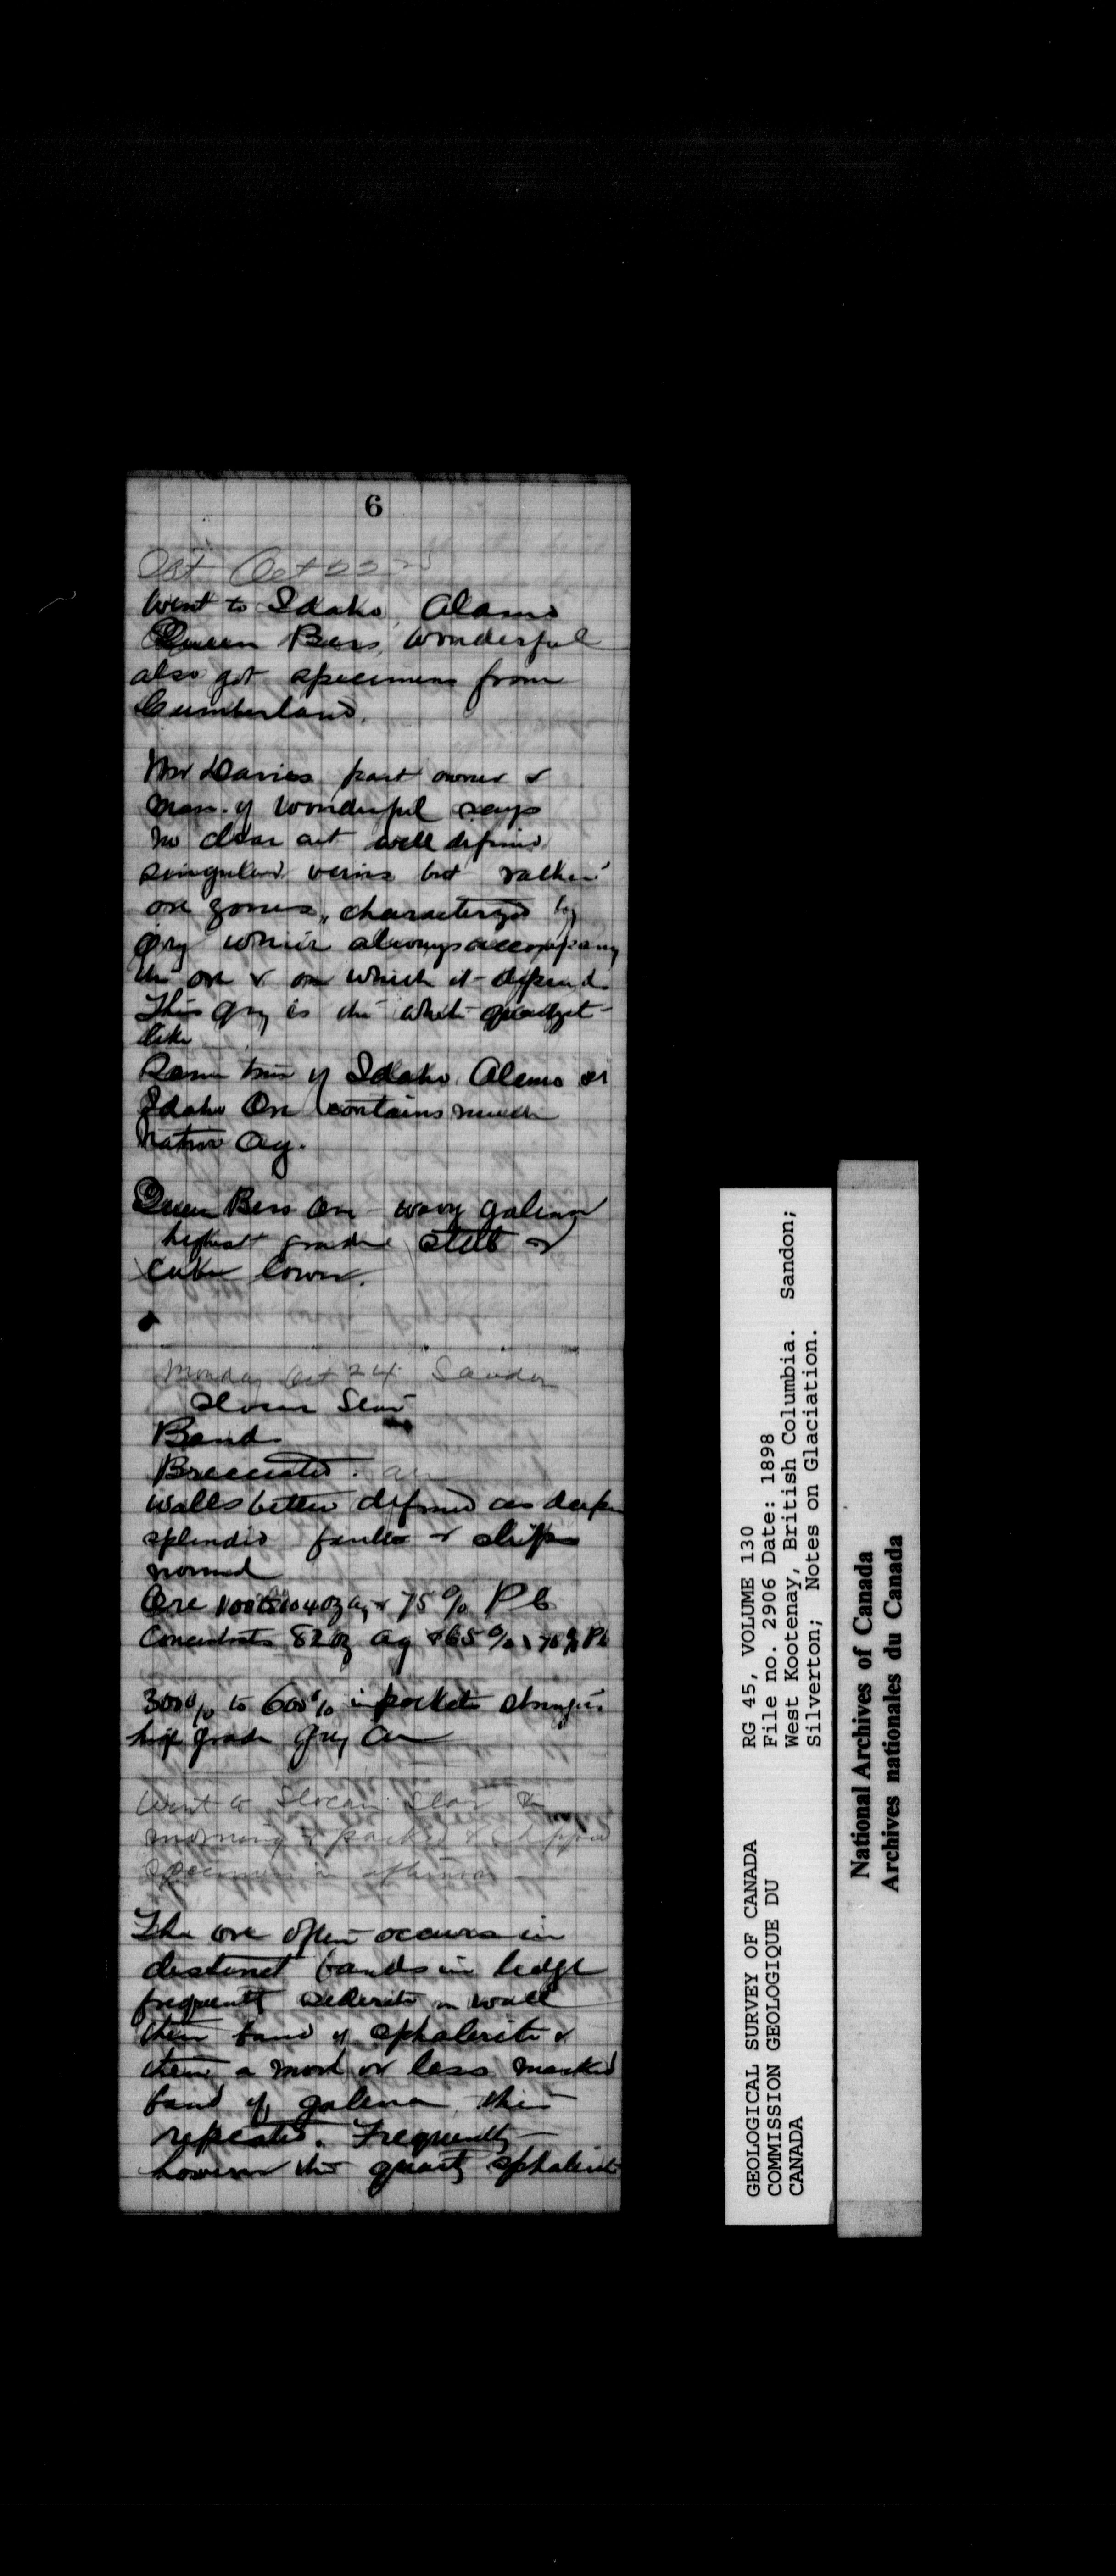 6
Sat Oct 22nd
Went to Idaho, Alamo
Queen Bess, Wonderful
also got specimens from
Cumberland.
Mr Davies part owner &
man. of Wonderful says
no clear cut well defined
singular veins but rather
ore zones, characterized by
which always accompany
the ore & on which it depends
This is the white
like
Same true of Idaho Alamo or
Idaho Ore contains much
native Ag.
Queen Bess Ore - wavy galena
highest grade steel &
cube lower.
Monday Oct 24 Sandon
Slocan Star
Band
Brecciated.
walls better defined as deeper
splendid faults & slips
normal
Ore 100 to 104 oz ag & 75% Pb
Concentrates 82 oz ag & 65% 70% Pb
300% to 600% in pockets
high grade grey
Went to Slocan Star in
morning & packed & shipped
specimens in afternoon
The ore often occurs in
distinct bands in ledge
frequently siderite on wall
then band of sphalerite &
then a more or less marked
band of galena, then
repeated. Frequently
however the quartz sphalerite
GEOLOGICAL SURVEY OF CANADA
COMMISSION GEOLOGIQUE DU
CANADA
RG 45, VOLUME 130
File no. 2906 Date: 1898
West Kootenay, British Columbia. Sandon;
Silverton; Notes on Glaciation.
National Archives of Canada
Archives nationales du Canada